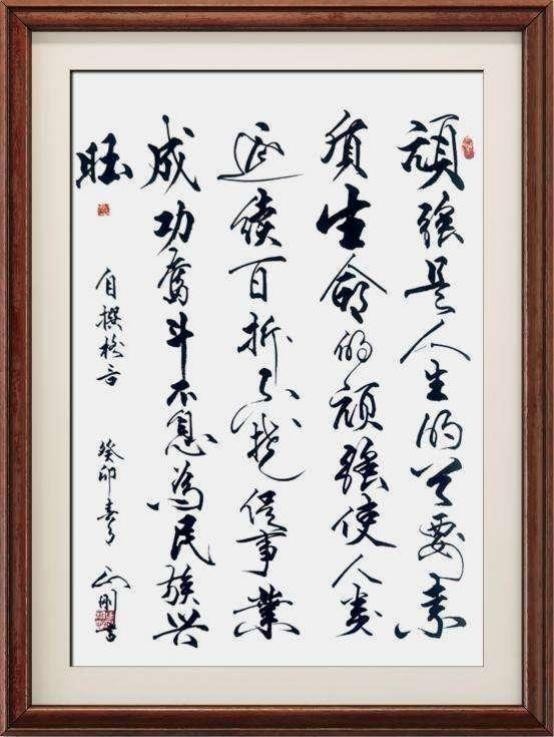 顽强是人生的必要素
质生命的顽强使人类
延续百折不挠促事业
成功奋斗不息为民族兴
旺
自撰格言 癸卯春月 刚书